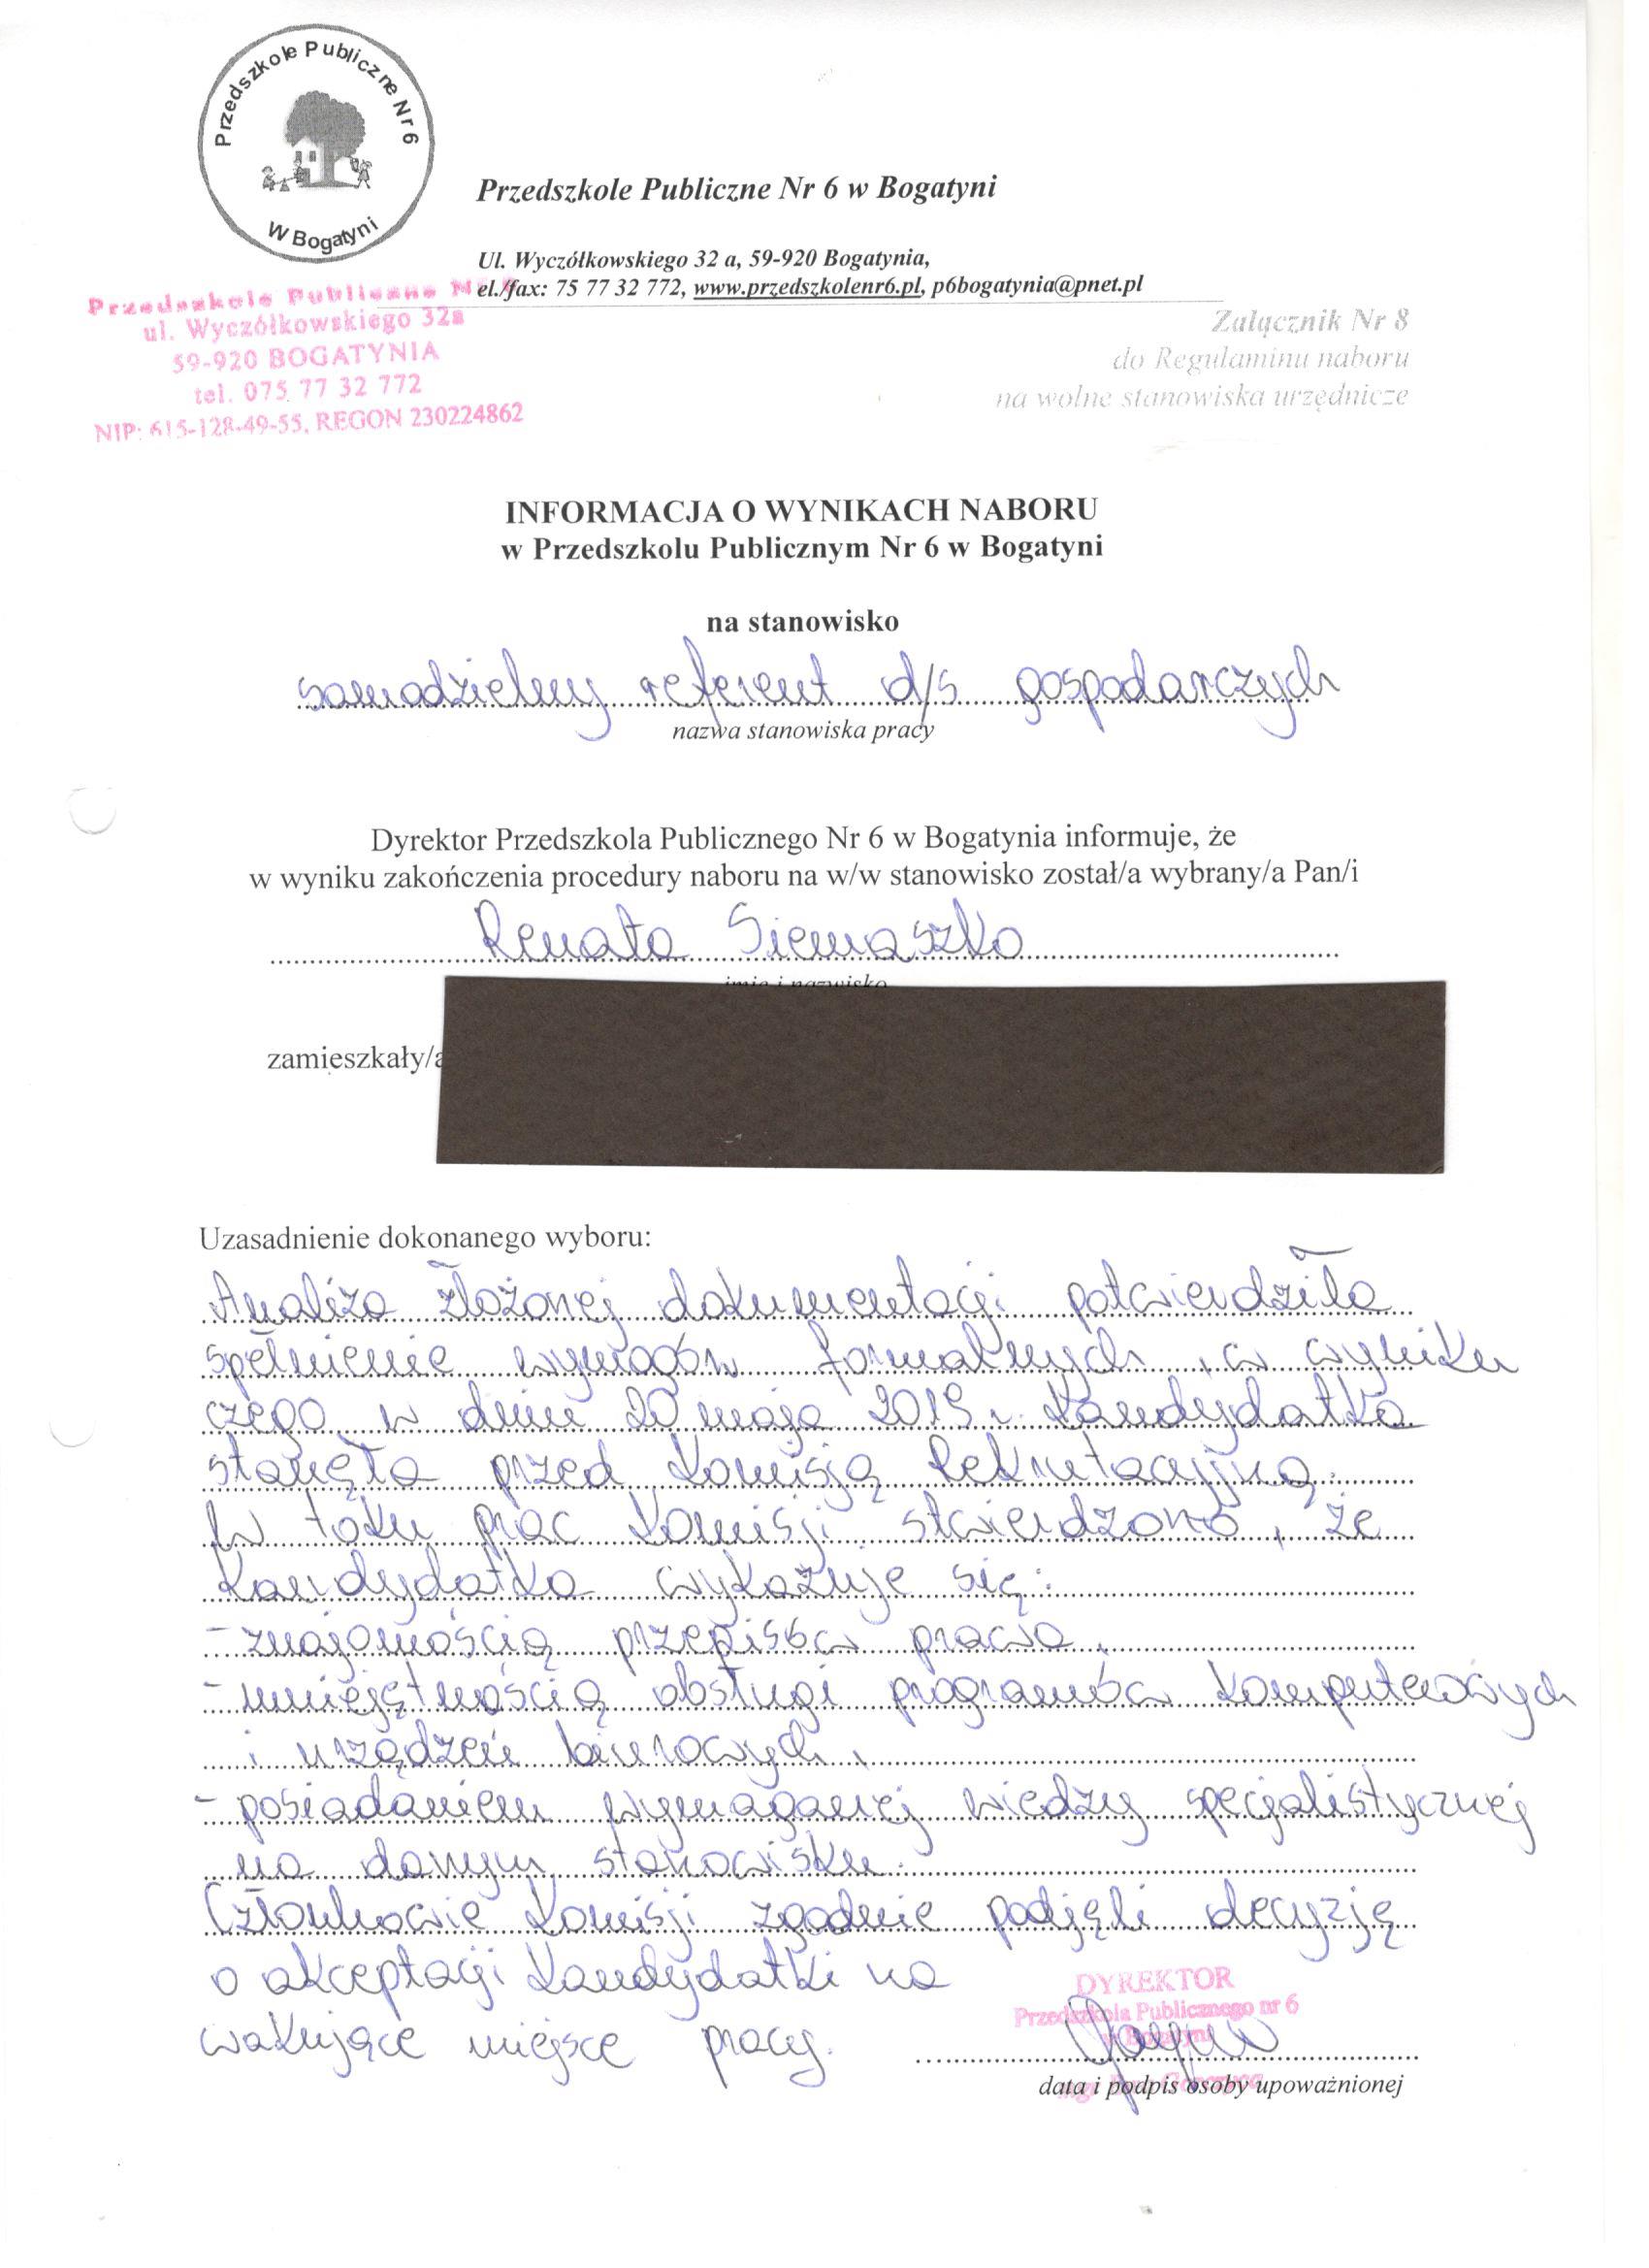 Przedszkole Publiczne Nr 6
W Bogatyni
Przedszkole Publiczne Nr 6 w Bogatyni
Ul. Wyczółkowskiego 32 a, 59-920 Bogatynia,
el./fax: 75 77 32 772, www.przedszkolenr6.pl, p6bogatynia@pnet.pl
Przedszkole Publiczne
ul. Wyczółkowskiego 32a
59-920 BOGATYNIA
tel. 075 77 32 772
NIP: 615-128-49-55, REGON 230224862
Załącznik Nr 8
do Regulaminu naboru
na wolne stanowiska urzędnicze
INFORMACJA O WYNIKACH NABORU
w Przedszkolu Publicznym Nr 6 w Bogatyni
na stanowisko
samodzielny referent d/s gospodarczych
nazwa stanowiska pracy
Dyrektor Przedszkola Publicznego Nr 6 w Bogatynia informuje, że
w wyniku zakończenia procedury naboru na w/w stanowisko został/a wybrany/a Pan/i
Renata Siemaszko
imię i nazwisko
zamieszkały/a
Uzasadnienie dokonanego wyboru:
Analiza złożonej dokumentacji potwierdziła
spełnienie wymogów formalnych, w wyniku
czego w dniu 20 maja 2019 r. Kandydatka
stanęła przed Komisją Rekrutacyjną.
W toku prac Komisji stwierdzono, że
Kandydatka wykazuje się:
- znajomością przepisów prawa,
- umiejętnością obsługi programów komputerowych
i urządzeń biurowych,
- posiadaniem wymaganej wiedzy specjalistycznej
na danym stanowisku.
Członkowie Komisji zgodnie podjęli decyzję
o akceptacji Kandydatki na
wakujące miejsce pracy.
DYREKTOR
Przedszkola Publicznego nr 6
w Bogatyni
data i podpis osoby upoważnionej